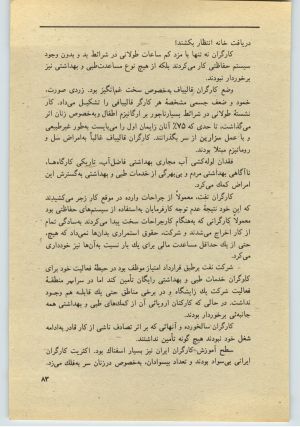 دریافت خانه انتظار بکشند!
کارگران نه تنها با مزد کم ساعات طولانی در شرائط بد و بدون وجود
سیستم حفاظتی کار می‌کردند بلکه از هیچ نوع مساعدت‌طبی و بهداشتی نیز
برخوردار نبودند.
وضع کارگران قالیباف به‌خصوص سخت غم‌انگیز بود. زردی صورت،
خمود و ضعف جسمی مشخصهٔ هر کارگر قالیبافی را تشکیل می‌داد. کار
نشستهٔ طولانی در شرائط بسیارناجور بر ارگانیزم اطفال وبه‌خصوص زنان اثر
می‌گذاشت، تا حدی که ۷۵٪ آنان زایمان اول را می‌بایست به‌طور غیرطبیعی
و با عمل سزارین از سر بگذرانند. کارگران قالیباف غالباً به‌امراض سل و
روماتیزم مبتلا بودند.
فقدان لوله‌کشی آب مجاری بهداشتی فاضل‌آب، تاریکی کارگاه‌ها،
ناآگاهی بهداشتی مردم و بی‌بهرگی از خدمات طبی و بهداشتی به‌گسترش این
امراض کمک می‌کرد.
کارگران نفت، معمولاً از جراحات وارده در موقع کار زجر می‌کشیدند
که این خود نتیجهٔ عدم توجه کارفرمایان به‌استفاده از سیستم‌های حفاظتی بود
معمولاً کارگرانی که به‌هنگام کارجراحات سخت پیدا می‌کردند به‌سادگی تمام
از کار اخراج می‌شدند و شرکت، حقوق استمراری بدان‌ها نمی‌داد که هیچ،
حتی از یك حداقل مساعدت مالی برای یك بار نسبت به‌آن‌ها نیز خودداری
می‌کرد.
شرکت نفت برطبق قرارداد امتیاز موظف بود در حیطهٔ فعالیت خود برای
کارگران خدمات طبی و بهداشتی رایگان تأمین کند اما در سراسر منطقهٔ
فعالیت شرکت یك زایشگاه و در برخی مناطق حتی یك قابله هم وجود
نداشت. در حالی که کارکنان اروپائی آن از کمك‌های طبی و بهداشتی همه
جانبه‌ئی برخوردار بودند.
کارگران سالخورده و آنهائی که بر اثر تصادف ناشی از کار قادر به‌ادامه
شغل خود نبودند هیچ گونه تأمین نداشتند.
سطح آموزش کارگران ایران نیز بسیار اسفناك بود. اکثریت کارگران
ایرانی بی‌سواد بودند و تعداد بیسوادان، به‌خصوص درزنان سر به‌فلك می‌زد.
۸۳